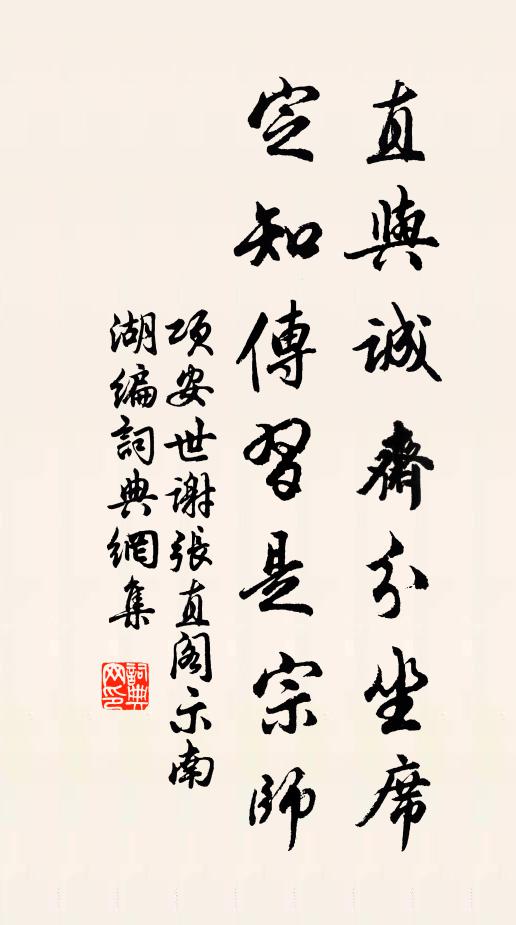 直與誠齋分坐席
定知傳習是宗師
項安世謝張直閣示南
湖編詞典網集
詞典網印